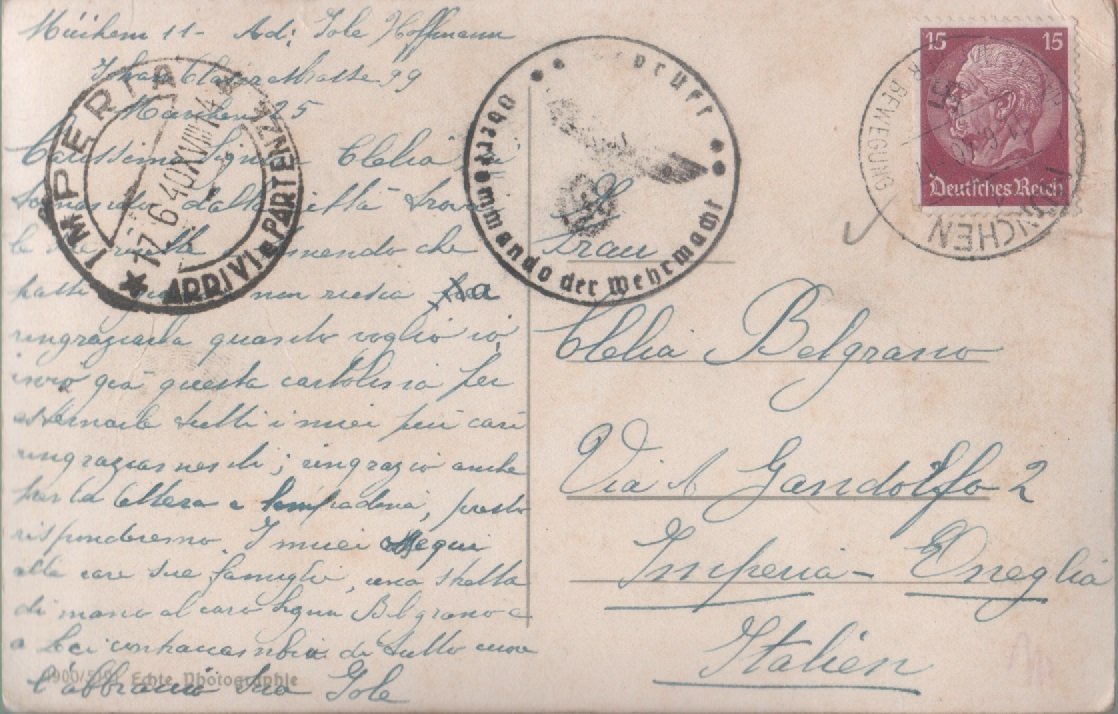 München 11- Ad: Iole Hoffmann
Johann Clanzestrasse 99
München 25
Carissima Signora Clelia
Tornando dalla città trovo
la sua che
non riesca
ringraziarla quanto voglio io,
invio già questa cartolina per
esternarle tutti i miei più cari
ringraziamenti; ringrazio anche
per la lettera e presto
risponderemo. I miei ossequi
alla cara sua famiglia, una stretta
di mano al caro Signor Belgrano e
a Lei contraccambio di tutto cuore
l'abbraccio sua Iole
Echte Photographie
IMPERIA
17 6 40 XVIII 14
ARRIVI e PARTENZE
Geprüft
Oberkommando der Wehrmacht
15 15
Deutsches Reich
MÜNCHEN
DER BEWEGUNG
Frau
Clelia Belgrano
Via A Gandolfo 2
Imperia - Oneglia
Italien